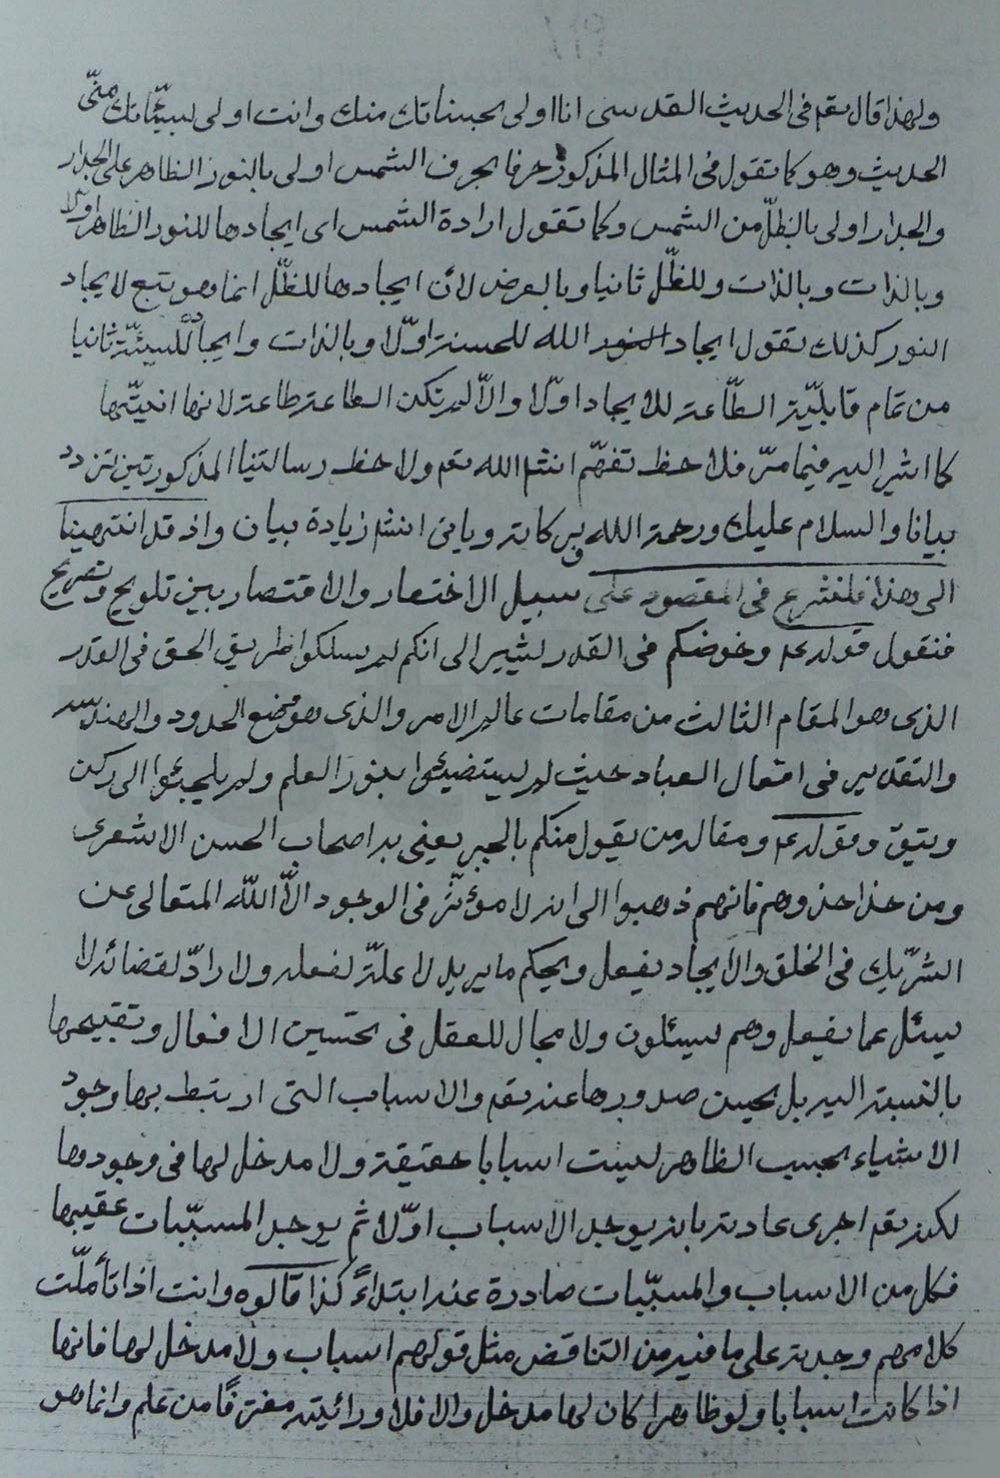 ولهذا قال تعم فى الحديث القدسى انا اولى بحسناتك منك وانت اولى بسيّئاتك منّى
الحديث وهو كما تقول فى المثال المذكور حرفا بحرف الشمس اولى بالنور الظاهر على الجدار
والجدار اولى بالظلّ من الشمس وكما تقول ارادة الشمس اى ايجادها للنور الظاهر اولا
وبالذات وبالذات وللظّل ثانيا وبالعرض لانّ ايجادها للظّل انما هو بتبع لايجاد
النور كذلك تقول ايجاد الله للحسنة اوّلا وبالذات وايجاده للسيئة ثانيا
من تمام قابليّة الطّاعة للايجاد اوّلا والاّ لم تكن الطاعة طاعة لانها انيّتها
كما اشير اليه فيما مرّ فلاحظ تفهّم انشاالله تعم ولاحظ رسالتنا المذكورتين تزدد
بيانا والسلام عليك ورحمة الله وبركاته وياتى انشا زيادة بيان واذ قد انتهينا
الى هذا فلنشرع فى المقصود على سبيل الاختصار والاقتصار بين تلويح وتصريح
فنقول قوله ع وخوضكم فى القدر يشير الى انكم لم يسلكوا طريق الحق فى القدر
الذى هو المقام الثالث من مقامات عالم الامر والذى هو موضع الحدود والهندسة
والتقدير فى افعال العباد حيث لم يستضيئوا بنور العلم ولم يلجئوا الى ركن
وثيق وقوله ع ومقاله من يقول منكم بالجبر يعنى به اصحاب الحسن الاشعرى
ومن حذا حذوهم فانهم ذهبوا الى انه لا مؤثّر فى الوجود الاّ اللّه المتعالى عن
الشرّيك فى الخلق والايجاد يفعل ويحكم ما يريد لا علّة لفعله ولا رادّ لقضائه لا
يسئل عما يفعل وهم يسئلون ولا مجال للعقل فى تحسين الافعال وتقبيحها
بالنسبة اليه بل يحسن صدورها عنه تعم والاسباب التى ارتبط بها وجود
الاشياء بحسب الظاهر ليست اسبابا حقيقة ولا مدخل لها فى وجودها
لكنه تعم اجرى عادته بانه يوجد الاسباب اوّلا ثم يوجد المسبّبات عقيبها
فكل من الاسباب والمسبّبات صادرة عنه ابتداءً كذا قالوه وانت اذا تأملّت
كلامهم وجدته على ما فيه من التناقض مثل قولهم اسباب ولا مدخل لها فانها
اذا كانت اسبابا ولو ظاهرا كان لها مدخل والا فلا ورائيته مفترقًا من علم وانما هو